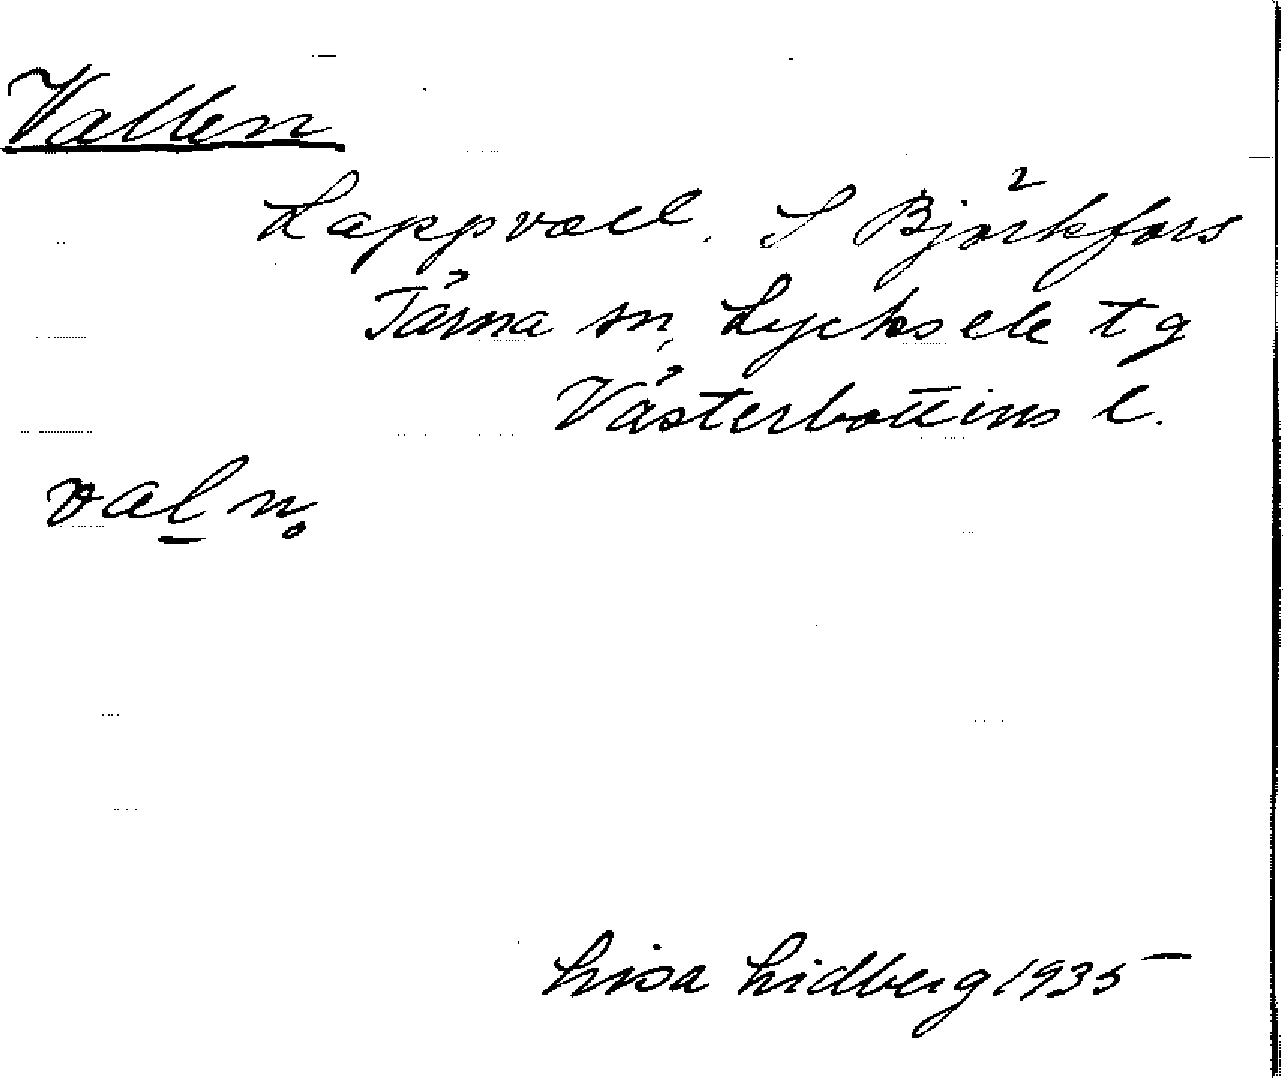 Vallen
Lappvall. S Björkfors
Tärna sn, Lycksele tg
Västerbottens l.
valn
Lisa Lidberg 1935